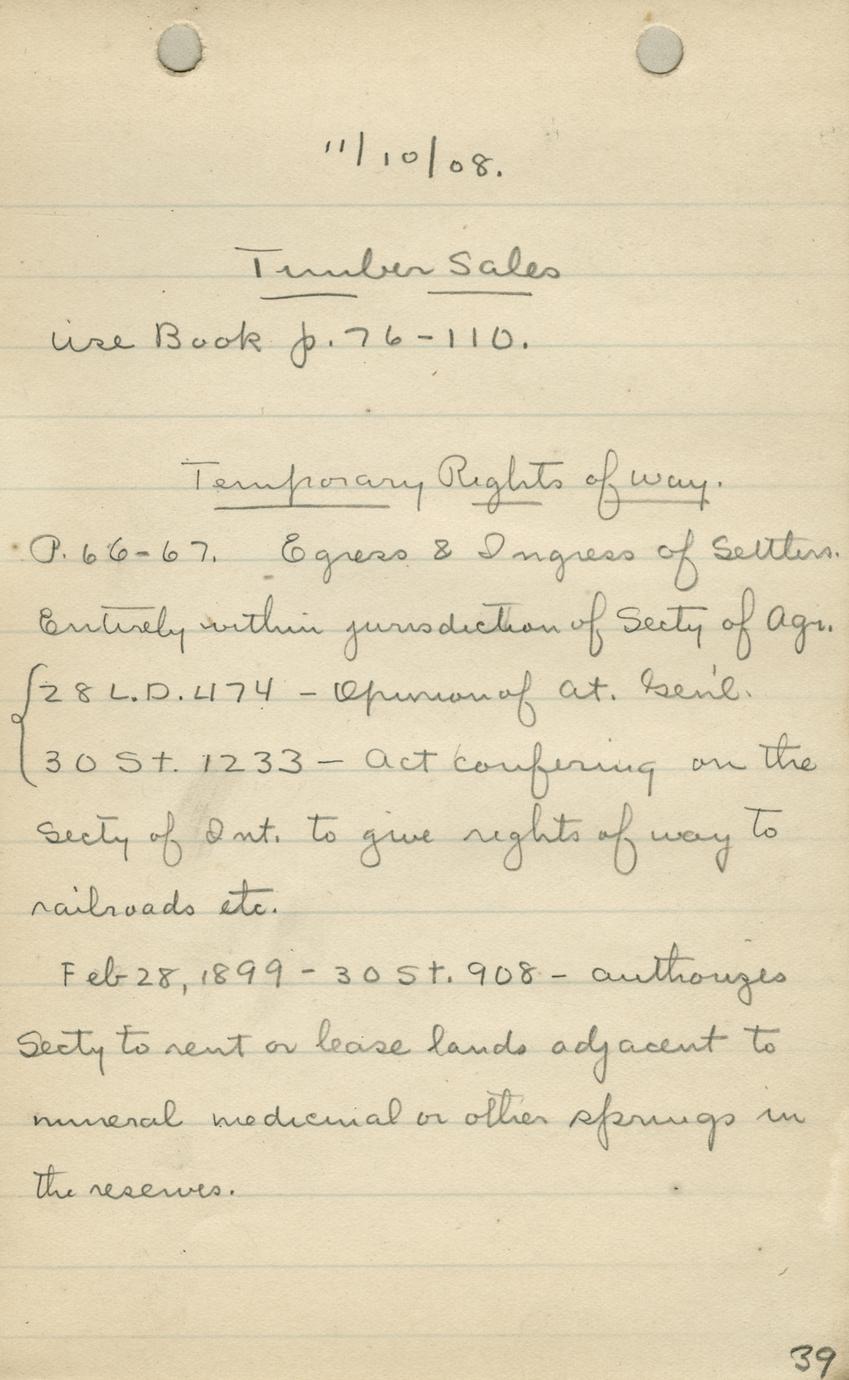 11/10/08.
Timber Sales
Use Book p. 76-110.
Temporary Rights of way.
P. 66-67. Egress & Ingress of Settlers.
Entirely within jurisdiction of Secty of Agr.
28 L.D. 474 - Opinion of At. Gen'l.
30 St. 1233 - Act confering on the
Secty of Int. to give rights of way to
railroads etc.
Feb 28, 1899 - 30 St. 908 - authorizes
Secty to rent or lease lands adjacent to
mineral medicinal or other springs in
the reserves.
39